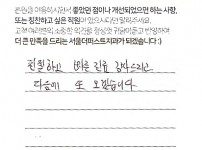 본원을 이용하시면서 좋았던 점이나 개선되었으면 하는 사항,
또는 칭찬하고 싶은 직원이 있으시다면 말해주세요.
고객 여러분의 소중한 의견을 항상 귀담아듣고 반영하여
더 큰 만족을 드리는 서울더퍼스트치과가 되겠습니다 :)
친절하고 빠른 진료 감사드리고
다음에 또 오겠습니다